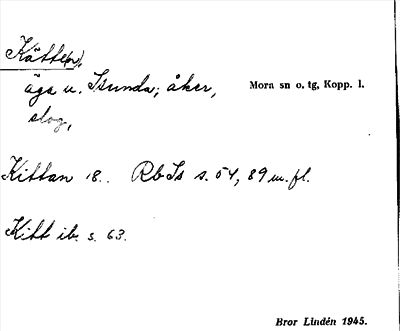 Kätte(n),
äga u. Isunda; åker, Mora sn o. tg, Kopp. l.
slog,
Kittan 18.. Rb Is s. 54, 89 m. fl.
Kitt ib. s. 63.
Bror Lindén 1945.